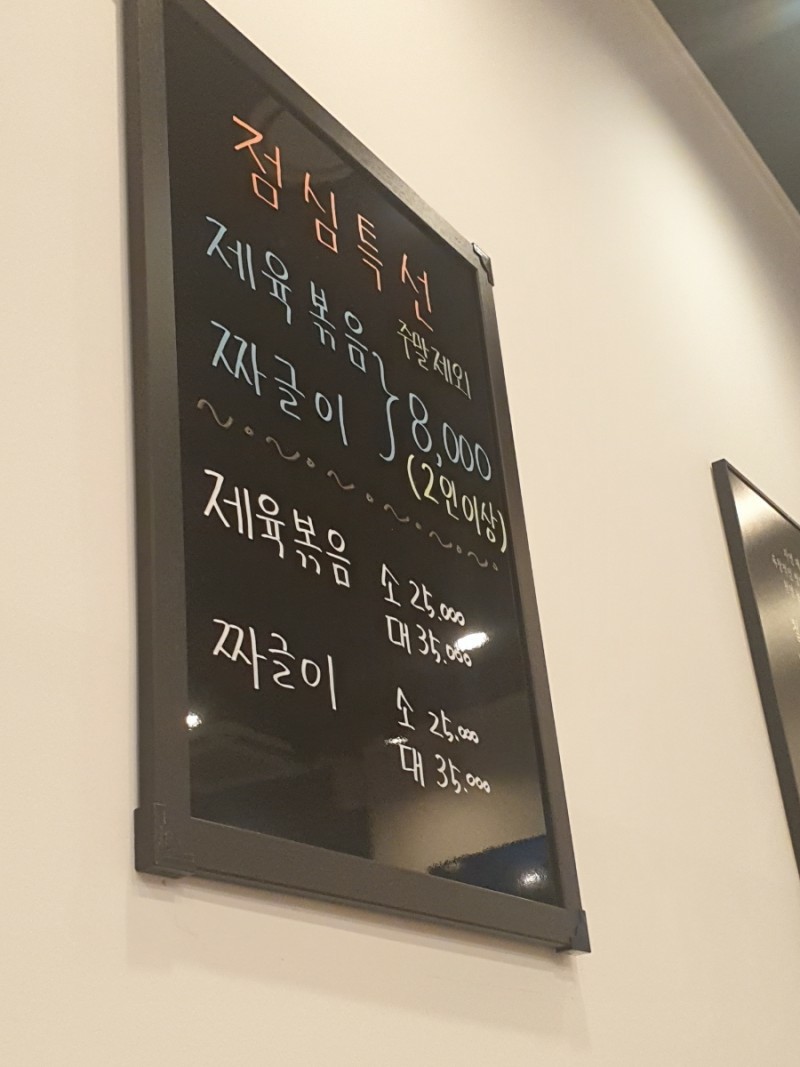 점심특선
주말제외
제육볶음
짜글이 } 8,000
(2인이상)
제육볶음 소 25.000
대 35.000
짜글이 소 25.000
대 35.000